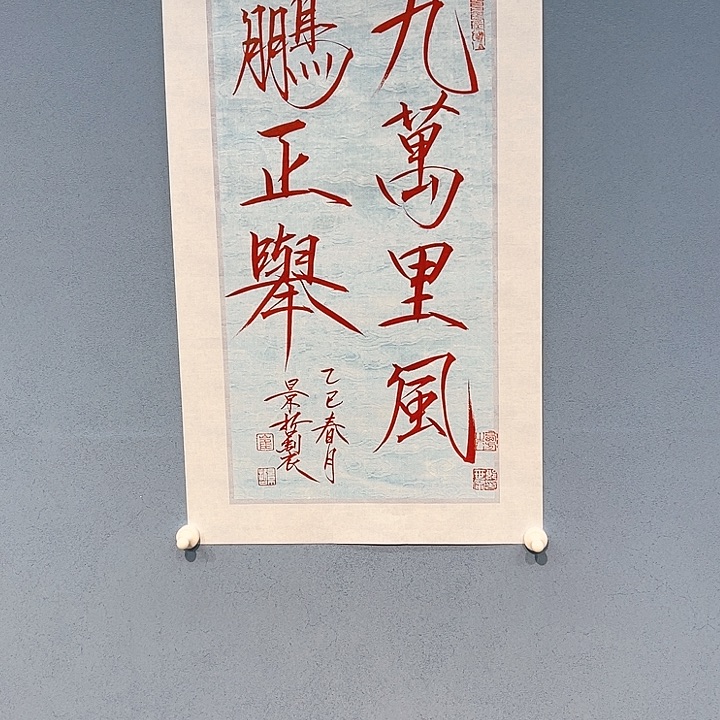 九萬里風
鵬正舉
乙巳春月
景哲製